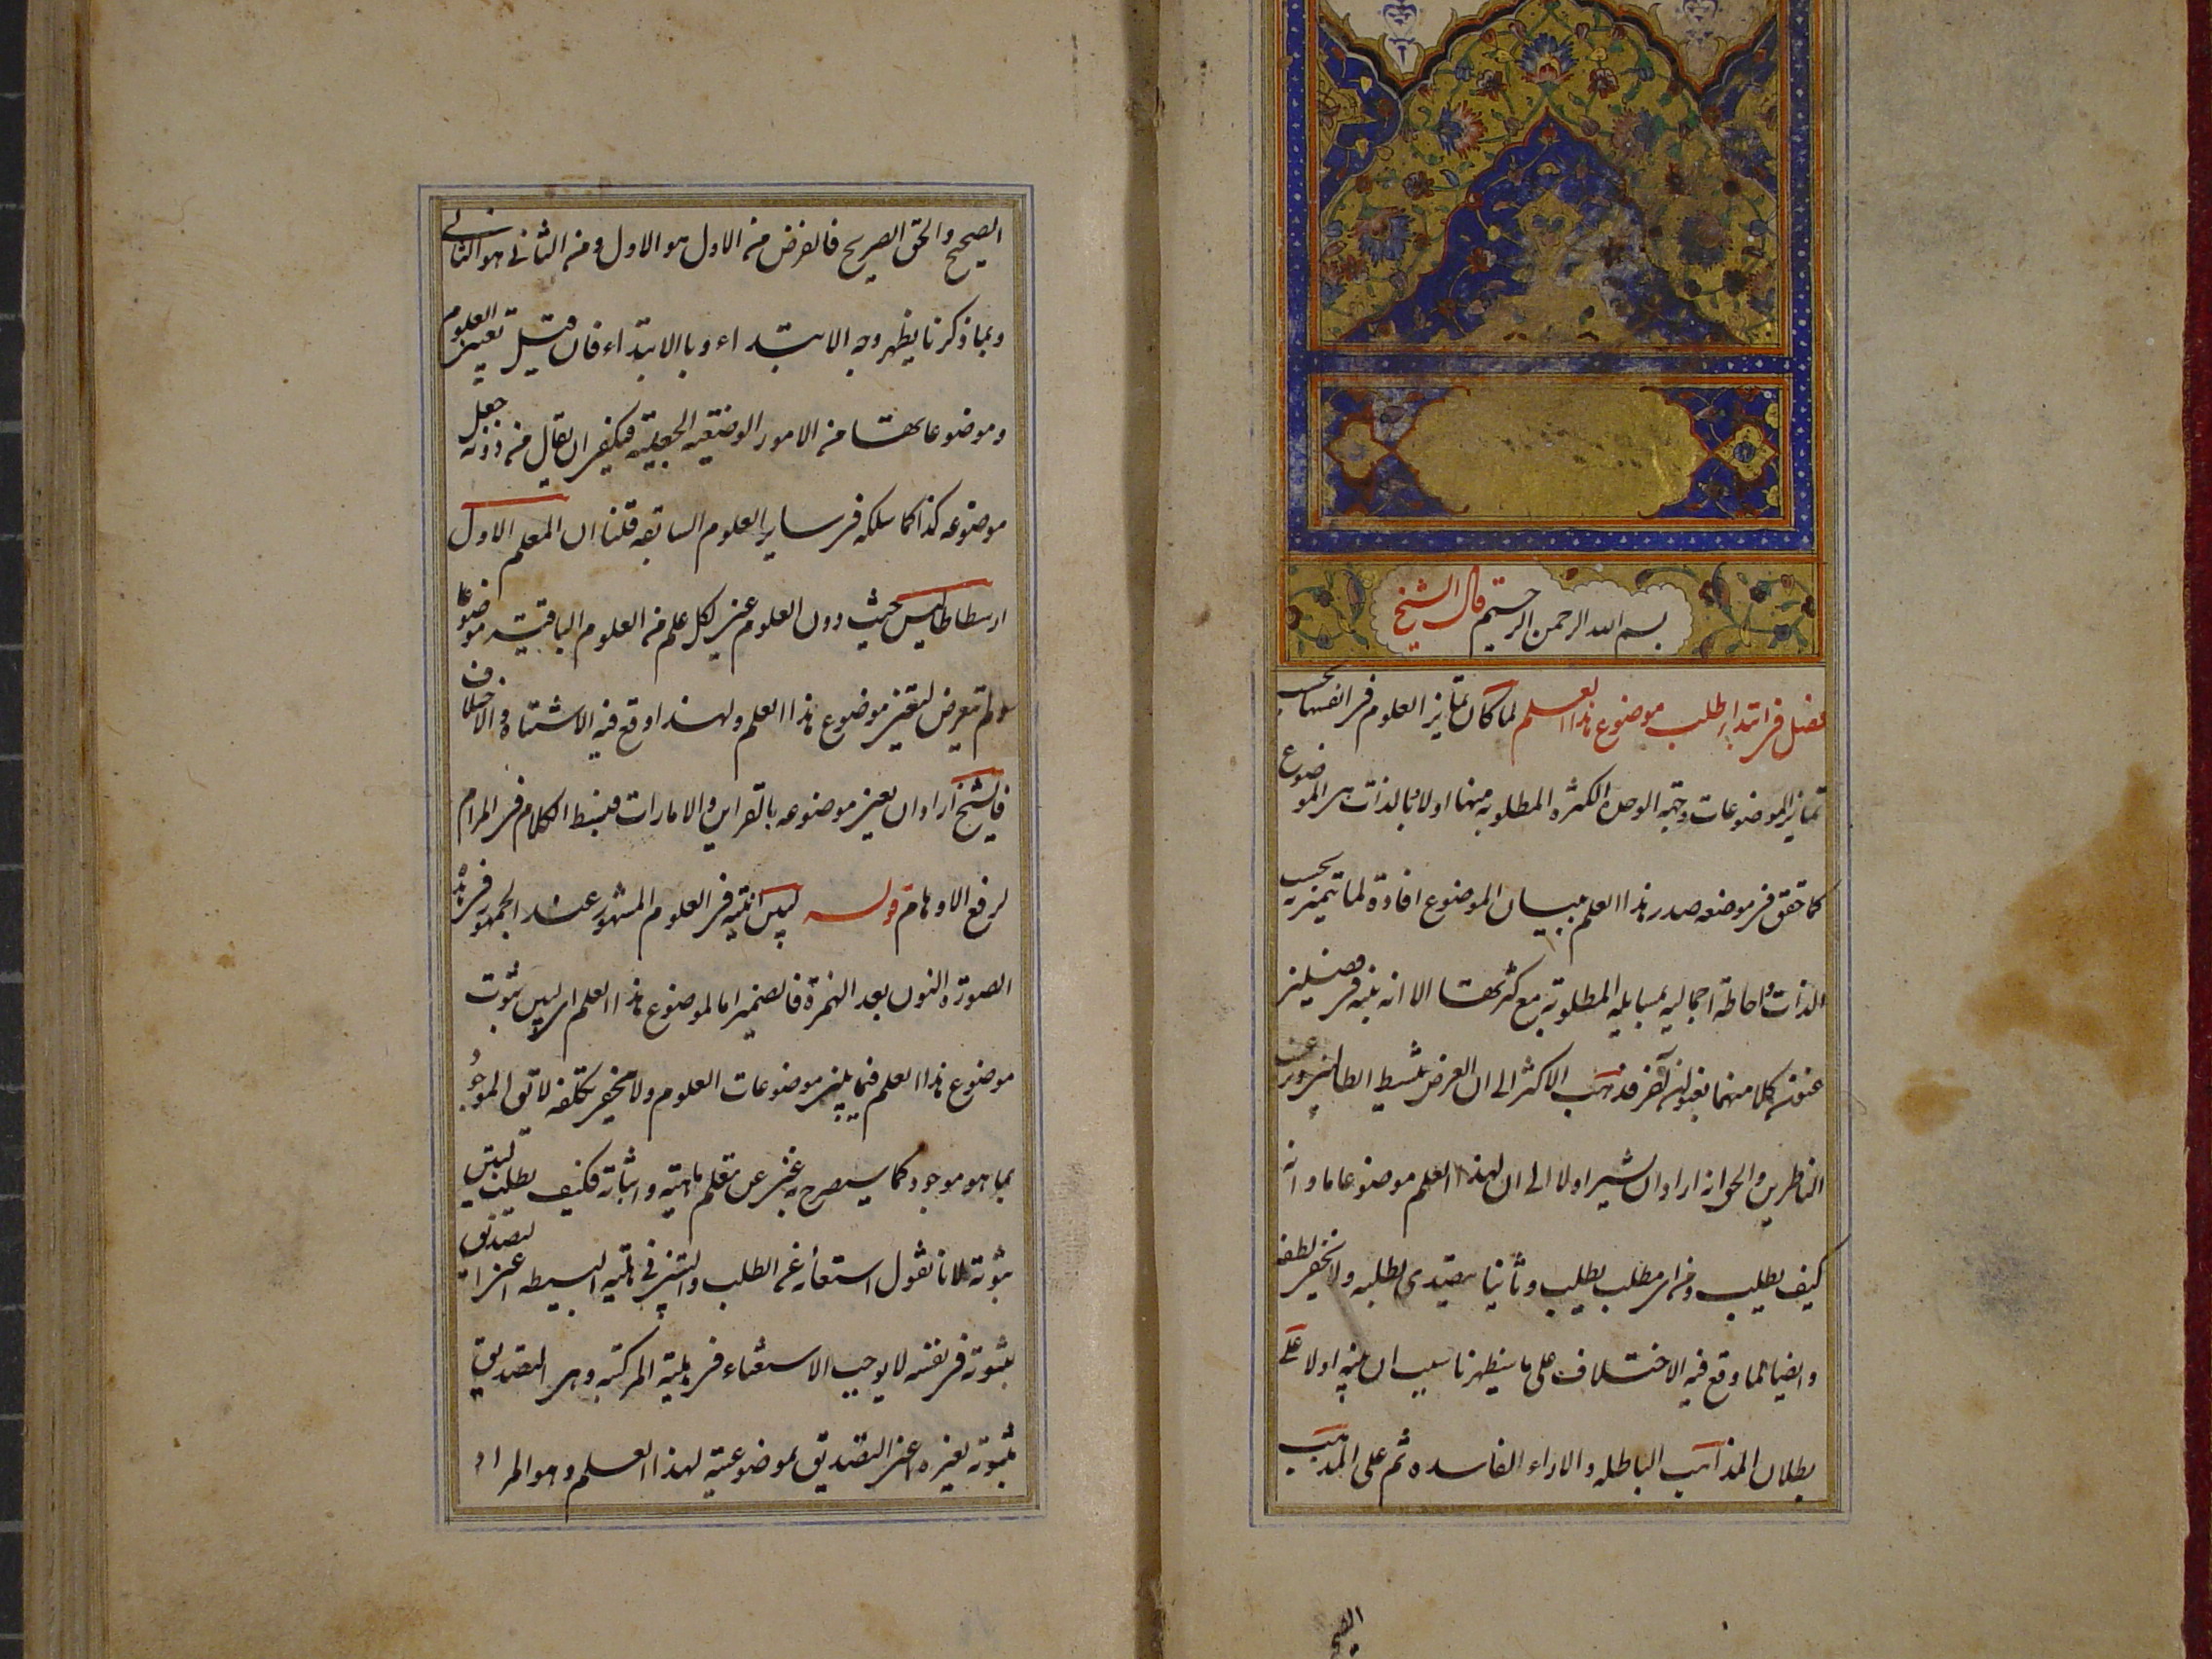 بسم الله الرحمن الرحیم قال الشیخ
فصل فی ابتداء طلب موضوع هذا العلم لما کان تمایز العلوم فی انفسها بحسب
تمایز الموضوعات وجهة الوحدة الکثرة المطلوبة منها اولا بالذات هی الموضوع
کما حقق فی موضعه صدر هذا العلم ببیان الموضوع افادة لما یتمیز بحسب
الذات واحاطة اجمالیه بمسایله المطلوبة مع کثرتها الا انه بینه فی فصلین
عنون کلا منهما بعنوان آخر فذهب الاکثر الی ان الغرض تنشیط الطالبین
الناظرین والحق انه اراد ان یشیر اولا الی ان لهذا العلم موضوعا ما وانه
کیف یطلب ومن ای مطلب یطلب وثانیا یتصدی لطلبه ولا یخفی لطفه
وایضا لما وقع فیه الاختلاف علی ما سیظهر ناسب ان ینبه اولا علی
بطلان المذاهب الباطله والاراء الفاسده ثم علی المذهب
الصحیح
الصحیح والحق الصریح فالغرض من الاول هو الاول ومن الثانی هو الثانی
وبما ذکرنا یظهر وجه الابتداء وبا الابتداء فان قیل تعیین العلوم
وموضوعاتها من الامور الوضعیه الجعلیة فیکفی ان یقال من دونه جعل
موضوعه کذا کما سلکه فی سایر العلوم السابقه قلنا ان المعلم الاول
ارسطاطالیس حیث دون العلوم عین لکل علم من العلوم الباقیة موضوعا
ولم یتعرض لتعیین موضوع هذا العلم ولهذا وقع فیه الاشتباه والاختلاف
فالشیخ اراد ان یعین موضوعه بالقراین والامارات فبسط الکلام فی المرام
لرفع الاوهام قوله لیس انیته فی العلوم المشهور عند الجمهور فی هذه
الصورة النون بعد الهمزة فالضمیر اما لموضوع هذا العلم ای لیس ثبوت
موضوع هذا العلم فیما بین موضوعات العلوم ولا یخفی تکلفه لا تق الموجود
بما هو موجود کما سیصرح به غنی عن تعلم ماهیته واثباته فکیف یطلب لیتی
ثبوته لانا نقول استغناؤه عن الطلب والتبین فی هلیة البسیطه اعنی التصدیق
بثبوته فی نفسه لا یوجب الاستغناء فی هلیة المرکبة وهی التصدیق
بثبوته لغیره اعنی التصدیق بموضوعیته لهذا العلم وهو المراد